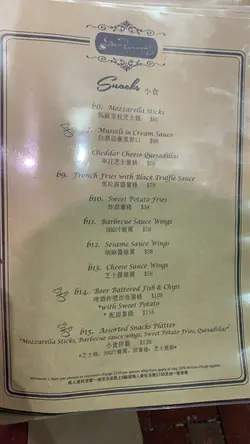 Snacks 小食
b6. Mozzarella Sticks
$68
b7. Mussels in Cream Sauce
白酒忌廉煮青口 $98
Cheddar Cheese Quesadillas
車打芝士薄餅 $58
b9. French Fries with Black Truffle Sauce
黑松露醬薯條 $58
b10. Sweet Potato Fries
炸甜薯條 $58
b11. Barbecue Sauce Wings
BBQ汁雞翼 $58
b12. Sesame Sauce Wings
胡麻醬雞翼 $58
b13. Cheese Sauce Wings
芝士醬雞翼 $58
b14. Beer Battered Fish & Chips
啤酒炸漿炸魚薯條 $108
*with Sweet Potato
* 配甜薯條 $118
b15. Assorted Snacks Platter
*Mozzarella Sticks, Barbecue sauce wings, Sweet Potato Fries, Quesadillas*
小食拼盤 $138